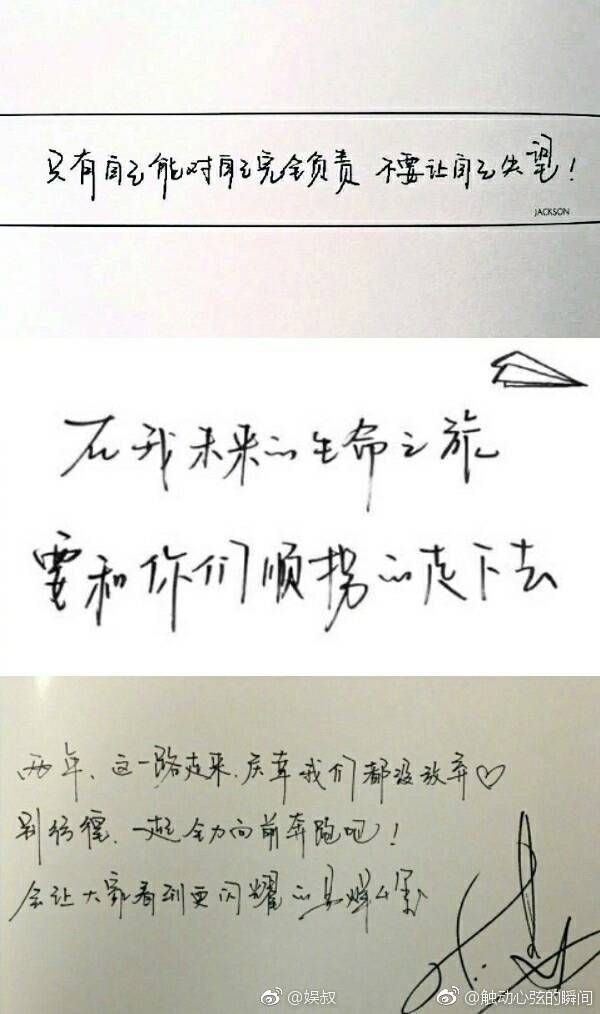 只有自己能对自己完全负责 不要让自己失望！
JACKSON
在我未来的生命之旅
要和你们顺拐的走下去
两年、这一路走来,庆幸我们都没放弃♡
别彷徨、一起全力向前奔跑吧！
会让大家看到更闪耀的易烊千玺
@娱叔 @触动心弦的瞬间